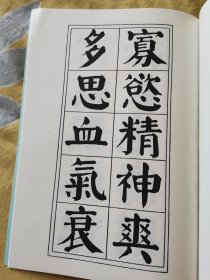 寡慾精神爽
多思血氣衰